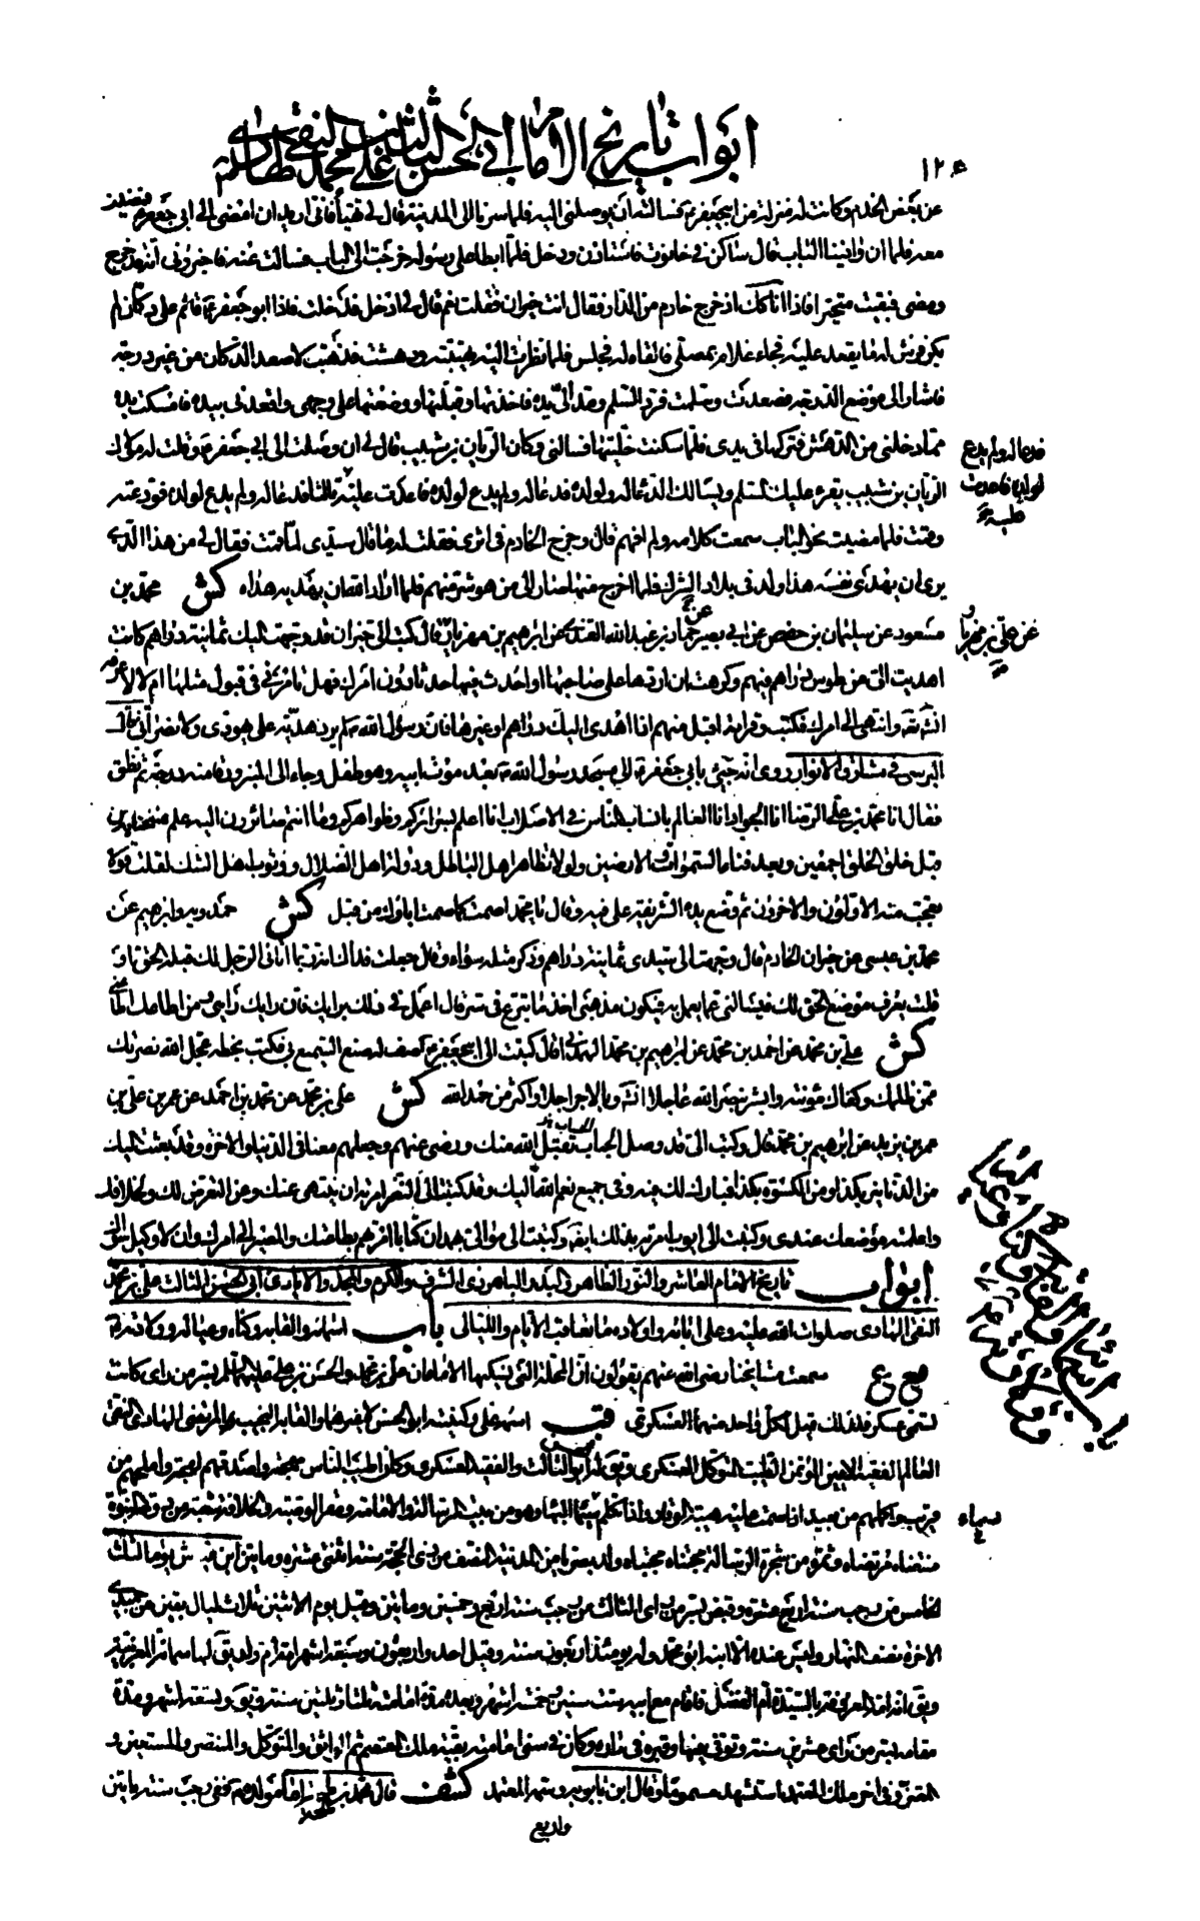 ابواب تاريخ الامام ابي الحسن الثالث علي بن محمد النقي الهادي
١٢٤
عن بعض الخدم وكانت له منزلة من ابيجعفرع فسالته ان يوصلني اليه فلما سرنا الى المدينة قال لي تهيأ فاني اريد ان امضى الى ابي جعفرع فمضيت
معه فلما ان وافينا الباب قال ساكن في حانوت فاستاذن ودخل فلما ابطا على رسوله خرجت الى الباب فسالت عنه فاخبروني انه قد خرج
ومضى فبقيت متحيرا فاذا انا كك اذ خرج خادم من الدار فقال انت خيران فقلت نعم قال لي ادخل فدخلت فاذا ابو جعفرع قائم على دكان لم
يكن فرش له ما يقعد عليه فجاء غلام بمصلى فالقاه له فجلس فلما نظرت اليه هيبته ودهشت فذهبت لاصعد الدكان من غير درجة
فاشار الى موضع الدرجة فصعدت وسلمت فرد السلم ومد الى يده فاخذتها وقبلتها ووضعتها على وجهي واقعدني بيده فامسكت يده
مما دخلني من الدهش فتركها في يدي فلما سكنت خليتها فسالني وكان الريان بن شبيب قال لي ان وصلت الى ابي جعفرع وقلت له مولاك
الريان بن شبيب يقرء عليك السلم ويسالك الدعاء له ولولده فدعا له ولم يدع لولده فاعدت عليه ثلثا فدعا له ولم يدع لولده فودعته
وقمت فلما مضيت نحو الباب سمعت كلامه ولم افهم قال وخرج الخادم في اثرى فقلت له ما قال سيدى لما قمت فقال لي من هذا الذي
يرى ان يهدى نفسه هذا ولد في بلاد الشرك فلما اخرج منها صار الى من هو شر منهم فلما اراد الله ان يهديه هداه كش محمد بن
مسعود عن سليمان بن حفص عن ابي بصير حماد بن عبد الله القندى عن ابرهيم بن مهزيار قال كتب الى خيران قد وجهت اليك ثمانية دراهم كانت
اهديت الى من طرسوس دراهم فيهم وكرهت ان اردها على صاحبها او احدث فيها حدثا دون امرك فهل تامرني في قبول مثلها ام لا لاعرفه
انشا الله وانتهى الى امرك فكتب وقراته اقبل منهم اذا اهدى اليك دراهم او غيرها فان رسول الله ص لم يرد هدية على يهودى ولا نصراني
البرسي في مشارق الانوار روى انه جيئ بابي جعفرع الى مسجد رسول الله ص بعد موت ابيه وهو طفل وجاء الى المنبر ورقا منه درجة ثم نطق
فقال انا محمد بن علي الرضا انا الجواد انا العالم بانساب الناس في الاصلاب انا اعلم بسرائركم وظواهركم وما انتم صائرون اليه علم منحنا به من
قبل خلق الخلق اجمعين وبعد فناء السموات والارضين ولولا تظاهر اهل الباطل ودولة اهل الضلال ووثوب اهل الشك لقلت قولا
تعجب منه الاولون والاخرون ثم وضع يده الشريفة على فيه وقال يا محمد اصمت كما صمت اباؤك من قبل كش حمدويه وابرهيم عن
محمد بن عيسى عن خيران الخادم قال وجهت الى سيدى ثمانية دراهم وذكر مثله سواء وقال جعلت فداك انه ربما اتاني الرجل لك قبله الحق او
قلت يعرف موضع الحق لك فيسالني عما يعمل به فيكون مذهبي اخذ ما يتبرع في سر قال اعمل في ذلك برايك فان رايك رايي ومن اطاعك اطاعني
كش علي بن محمد عن احمد بن محمد عن ابرهيم بن محمد الهمداني قال كتبت الى ابيجعفرع اصف له صنع السميع بي فكتب بخطه عجل الله نصرتك
ممن ظلمك وكفاك مؤنته وابشر بنصر الله عاجلا انشا الله وبالاجر اجلا واكثر من حمد الله كش علي بن محمد عن محمد بن احمد عن عمر بن علي بن
عمر بن يزيد عن ابرهيم بن محمد قال وكتب الى قد وصل الحساب تقبل الله منك ورضى عنهم وجعلهم معنا في الدنيا والاخرة وقد بعثت اليك
من الدنانير بكذا ومن الكسوة بكذا فبارك لك فيه وفي جميع نعم الله اليك وقد كتبت الى النضر امرته ان ينتهى عنك وعن التعرض لك ولخلافك
واعلمته موضعك عندى وكتبت الى ايوب امرته بذلك ايضا وكتبت الى موالي بهمدان كتابا امرتهم بطاعتك والمصير الى امرك وان لا وكيل سواك
ابواب تاريخ الامام العاشر والنور الظاهر والبدر الباهر ذى الشرف والكرم والمجد والايادى ابي الحسن الثالث علي بن محمد
النقى الهادى صلوات الله عليه وعلى ابائه واولاده ما تعاقبت الايام والليالى باب اسمائه والقابه وكناه وعلله وولادته
مع ع سمعت مشايخنا رضى الله عنهم يقولون ان المحلة التي يسكنها الامامان علي بن محمد والحسن بن علي عليهما السلم بسر من راى كانت
تسمى عسكر فلذلك قيل لكل واحد منهما العسكرى قب اسمه علي وكنيته ابو الحسن لا غيرهما والقابه النجيب المرتضى الهادى النقى
العالم الفقيه الامين المؤتمن الطيب المتوكل العسكرى ويق له ابو الحسن الثالث والفقيه العسكرى وكان اطيب الناس مهجة واصدقهم لهجة واملحهم من
قريب واكملهم من بعيد اذا صمت عليه هيبة الوقار واذا تكلم سيماء البهاء وهو من بيت الرسالة والامامة ومقر الوصية والخلافة شعبة من دوحة النبوة
منتضاه مرتضاه وثمرة من شجرة الرسالة مجتناه مجتباه ولد بصريا من المدينة النصف من ذى الحجة سنة اثنتي عشرة ومايتين ابن عياش يوم الثلث
الخامس من رجب سنة اربع عشرة وقبض بسر من راى الثالث من رجب سنة اربع وخمسين ومايتين وقيل يوم الاثنين ثلاث ليال بقين من جميدى
الاخرة نصف النهار وليس عنده الا ابنه ابو محمد وله يومئذ اربعون سنة وقيل احد واربعون وسبعة اشهر امه ام ولد يق لها سمانة المغربية
ويق ان امه المعروفة بالسيدة ام الفضل فاقام مع ابيه ست سنين وخمسة اشهر وبعده مدة امامته ثلثا وثلثين سنة ويق وتسعة اشهر ومدة
مقامه بسر من راى عشرين سنة وتوفى فيها وقبره في داره وكان في سنى امامته بقية ملك المعتصم ثم الواثق والمتوكل والمنتصر والمستعين و
المعتز وفي اخر ملك المعتمد استشهد مسموما وقال ابن بابويه وسمه المعتمد كشف قال محمد بن طلحة اما مولده ع ففي رجب سنة مايتين
واربع
فدعا له ولم يدع
لولده فاعدت
عليه خ
عن علي بن مهزيار
خ
سيماء